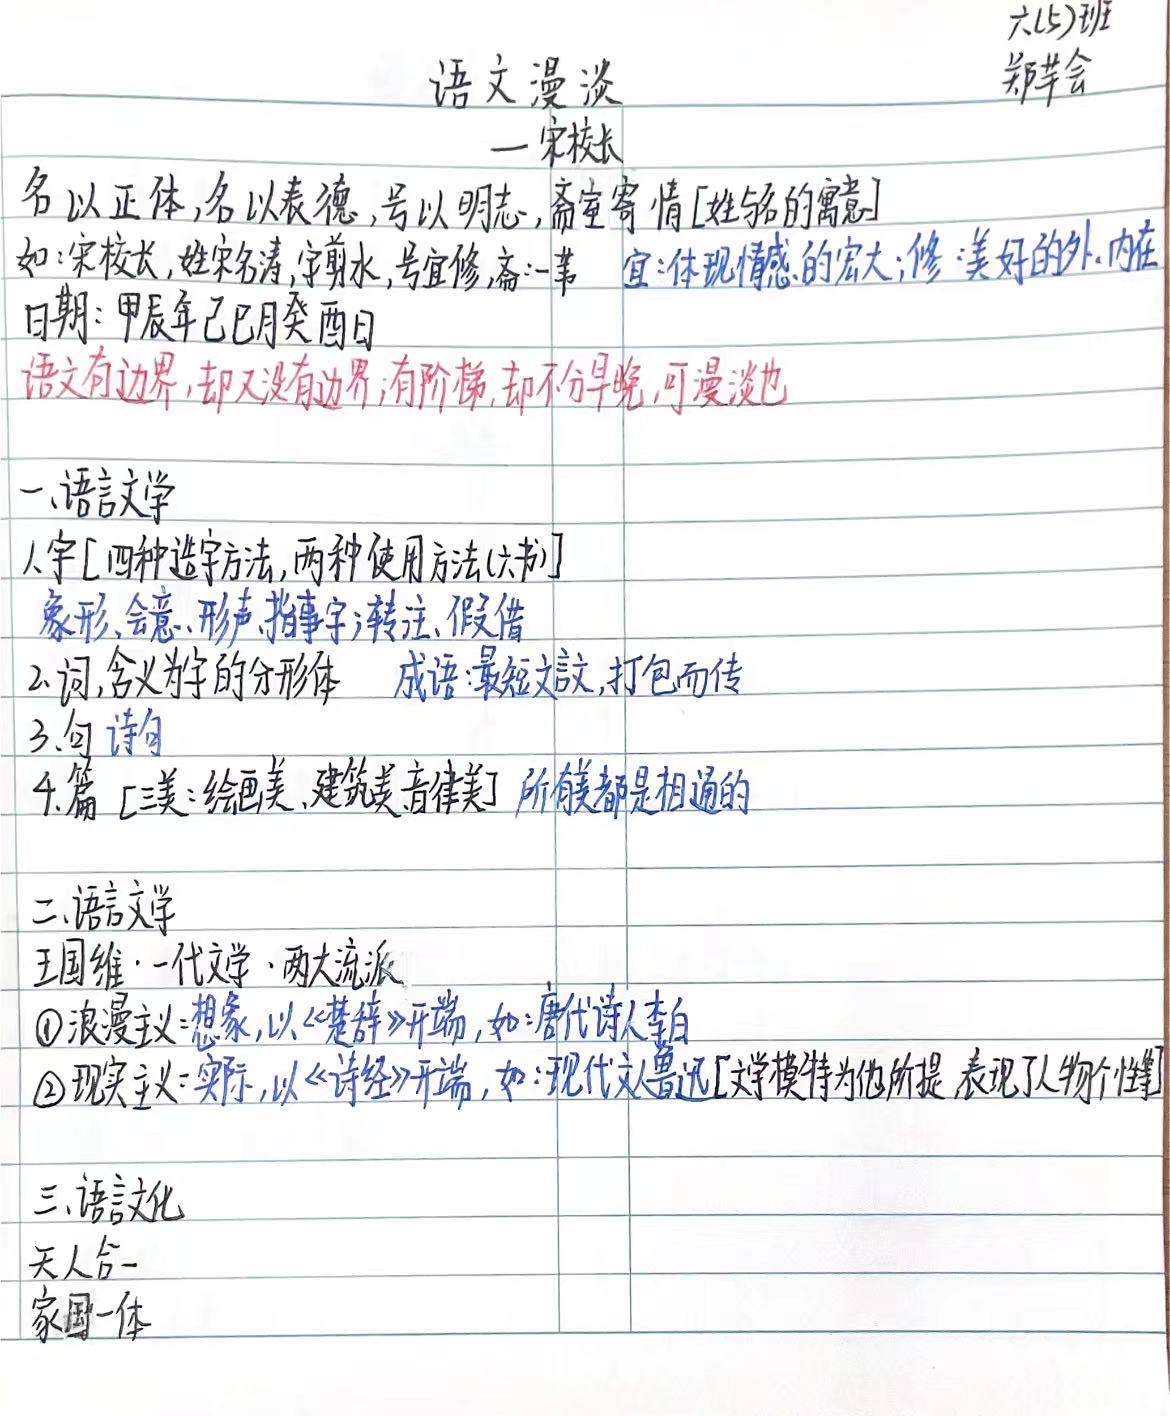 六(5)班
郑芊会
语文漫淡
—宋校长
名以正体,名以表德,号以明志,斋室寄情[姓与名的寓意]
如:宋校长,姓宋名涛,字剪水,号宜修,斋:一苇 宜:体现情感的宏大;修:美好的外、内在
日期:甲辰年己巳月癸酉日
语文有边界,却又没有边界;有阶梯,却不分早晚,可漫淡也
一、语言文学
1.字[四种造字方法,两种使用方法(六书)]
象形、会意、形声、指事字;转注、假借
2.词,含义为字的分形体 成语:最短文言文,打包而传
3.句 诗句
4.篇 [三美:绘画美、建筑美、音律美] 所有美都是相通的
二、语言文学
王国维·一代文学·两大流派
①浪漫主义:想象,以《楚辞》开端,如:唐代诗人李白
②现实主义:实际,以《诗经》开端,如:现代文人鲁迅[文学模特为他所提,表现了人物个性等]
三、语言文化
天人合一
家国一体